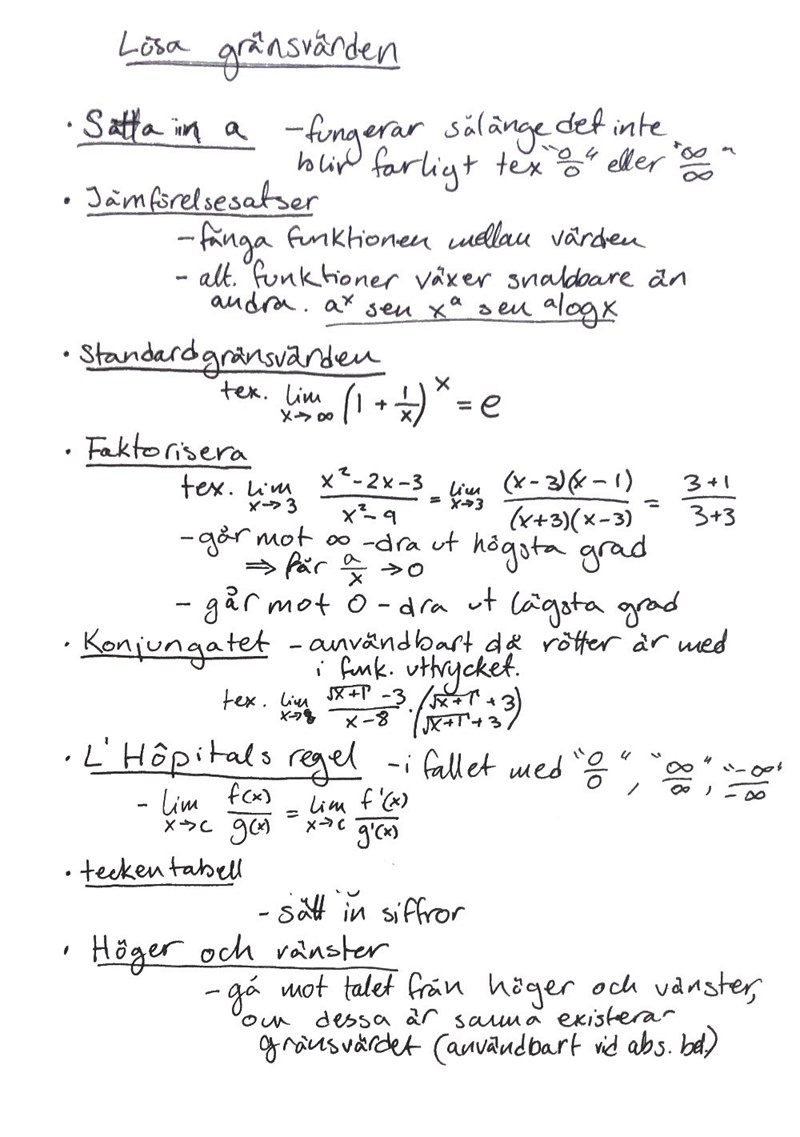 Lösa gränsvärden
· Sätta in a - fungerar sålänge det inte
blir farligt tex "0/0" eller "∞/∞"
· Jämförelsesatser
- fånga funktionen mellan värden
- alt. funktioner växer snabbare än
andra. a^x sen x^a sen alogx
· Standardgränsvärden
tex. lim x→∞ (1 + 1/x)^x = e
· Faktorisera
tex. lim x→3 (x²-2x-3)/(x²-9) = lim x→3 ((x-3)(x-1))/((x+3)(x-3)) = (3+1)/(3+3)
- går mot ∞ - dra ut högsta grad
⇒ får a/x → 0
- går mot 0 - dra ut lägsta grad
· Konjungatet - användbart då rötter är med
i funk. uttrycket.
tex. lim x→8 (√x+1 - 3)/(x-8) · (√x+1 + 3)/(√x+1 + 3)
· L'Hôpitals regel - i fallet med "0/0", "∞/∞", "-∞/-∞"
- lim x→c f(x)/g(x) = lim x→c f'(x)/g'(x)
· teckentabell
- sätt in siffror
· Höger och vänster
- gå mot talet från höger och vänster,
om dessa är samma existerar
gränsvärdet (användbart vid abs. bel.)